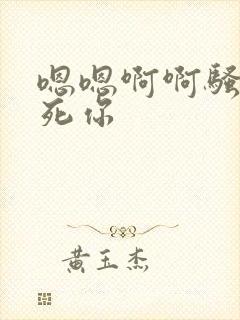 嗯嗯啊啊骚
死你
黄玉杰